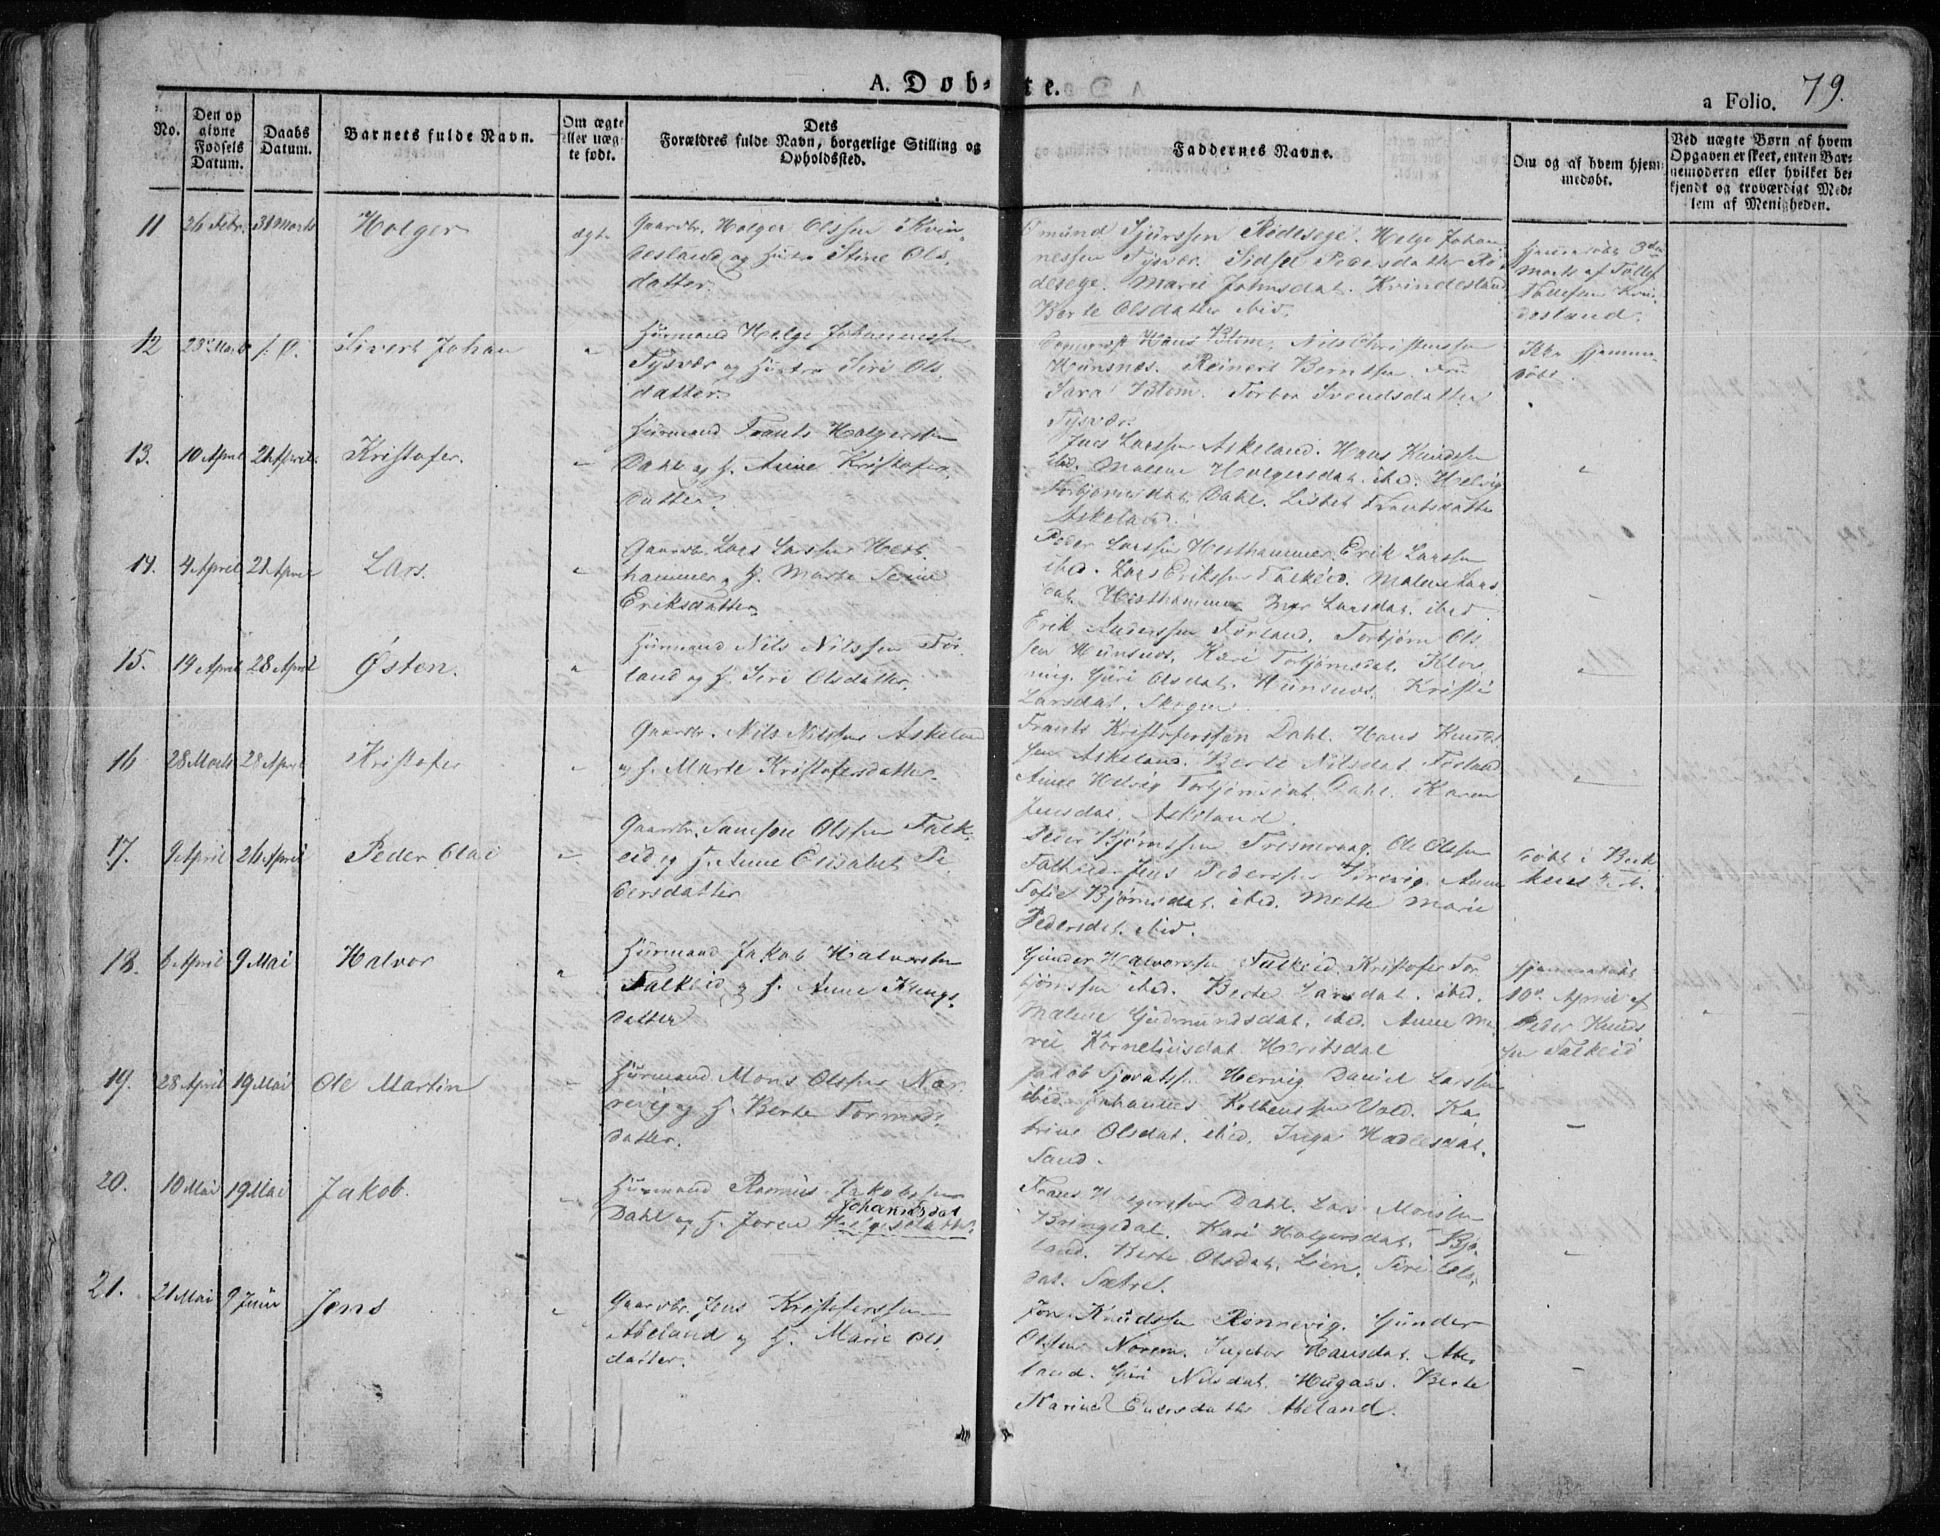 A. Døb-te.
a Folio. 79.
No.
Den opgivne Fødsels Datum.
Daabs Datum.
Barnets fulde Navn.
Om ægte eller uægte født.
Dets Forældres fulde Navn, borgerlige Stilling og Opholdssted.
Faddernes Navne.
Om og af hvem hjemmedøbt.
Ved uægte Børn af hvem Opgaven er skeet, enten Barnemoderen eller hvilket bekjendt og troværdigt Medlem af Menigheden.
11 26 Febr. 31 Marts Holger ægte
Gaardbr. Holger Olssen Kvin-
desland og Hustro Stine Ols-
datter.
Omund Sjurssen Rødesege. Helge Johan-
nessen Tysvær. Sidsel Pedersdatter Rø-
desege. Mari Johnsdat. Kvindesland
Berte Olsdatter ibid.
Hjemmedøbt 3die
Marts af Tollef
Tollefsen Kvin-
desland.
12 23 Marts s. D. Sivert Johan "
Huusmand Helge Johannessen
Tysvær og Hustro Siri Ols-
datter.
Hans Blom. Nils Christenssen
Hunsnes. Reinert Berntsen. Fru
Sara Blom. Torbor Svendsdatter
Tysvær.
Ikke hjemme-
døbt.
13. 10 April 21 April Kristofer. "
Huusmand Frants Holgerssen
Dahl og H. Anne Kristofer-
datter.
Lars Larssen Askeland. Hans Knudssen
ibid. Malene Holgersdat. ibid. Helvig
Torbjørnsdat. Dahl. Lisbet Frantsdatter
Askeland.
"
14. 4 April 21 April Lars. "
Gaardbr. Lars Larssen Hest-
hammer og H. Marte Serine
Eriksdatter.
Peder Larssen Hesthammer. Erik Larssen
ibid. Lars Erikssen Falkeid. Malene Lars-
dat. Hesthammer Inger Larsdat. ibid.
"
15. 14 April 28 April Østen. "
Huusmand Nils Nilssen Før-
land og H. Siri Olsdatter.
Erik Anderssen Førland. Torbjørn Ols-
sen Hunsnes. Kari Torbjørnsdat. Klov-
ning. Guri Olsdat. Hunsnes. Kristi
Larsdat. Skogen.
"
16 28 Marts 28 April Kristofer "
Gaardbr. Nils Nilssen Askeland
og H. Marte Kristofersdatter.
Frants Kristoferssøn Dahl. Hans Knuds-
sen Askeland. Berte Nilsdat. Førland
Anne Helvig Torbjørnsdat. Dahl. Karen
Jensdat. Askeland.
"
17. 9 April 26 April Peder Olai "
Gaardbr. Samson Olssen Falk-
eid og H. Anne Elisabet Pe-
dersdatter
Peder Bjørnssen Ole Olssen
Falkeid. Jens Pederssen Anne
Sofie Bjørnsdat. ibid. Mette Marie
Pedersdat. ibid.
døbt i
18. 6 April 9 Mai Halvor "
Huusmand Jakob Halvorssen
Falkeid og H. Anne Knuds-
datter
Gunder Halvorssen Falkeid. Kristofer Tor-
bjørnssen ibid. Berte Larsdat. ibid.
Malene Gudmundsdat. ibid. Anne Ma-
rie Korneliusdat.
Hjemmedøbt
10d. April af
Peder Knuds-
sen Falkeid
19. 28 April 19 Mai Ole Martin "
Huusmand Mons Olssen Nor-
revig og H. Berte Tormods-
datter.
Jakob Hervig Daniel Larssen
ibid. Johannes Vold. Ka-
trine Olsdat. ibid. Inga
Sand.
"
20. 10 Mai 19 Mai Jakob. "
Huusmand Rasmus Jakobssen
Johannesdat
Dahl og H. Joren Helgesdatter.
Frans Holgerssen Dahl. Lars Monssen
Bringedal. Kari Holgersdat. Bjø-
land. Berte Olsdat. Lien. Siri Ols-
dat. Sætret.
"
21. 21 Mai 9 Juni Jens "
Gaardbr. Jens Kristoferssen
Abeland og H. Marie Ols-
datter.
Jon Knudssen Rønnevig. Gunder
Olssen Norem. Ingebor Hansdat. Abe-
land. Guri Nilsdat. Hugaas. Berte
Karine Abeland.
"